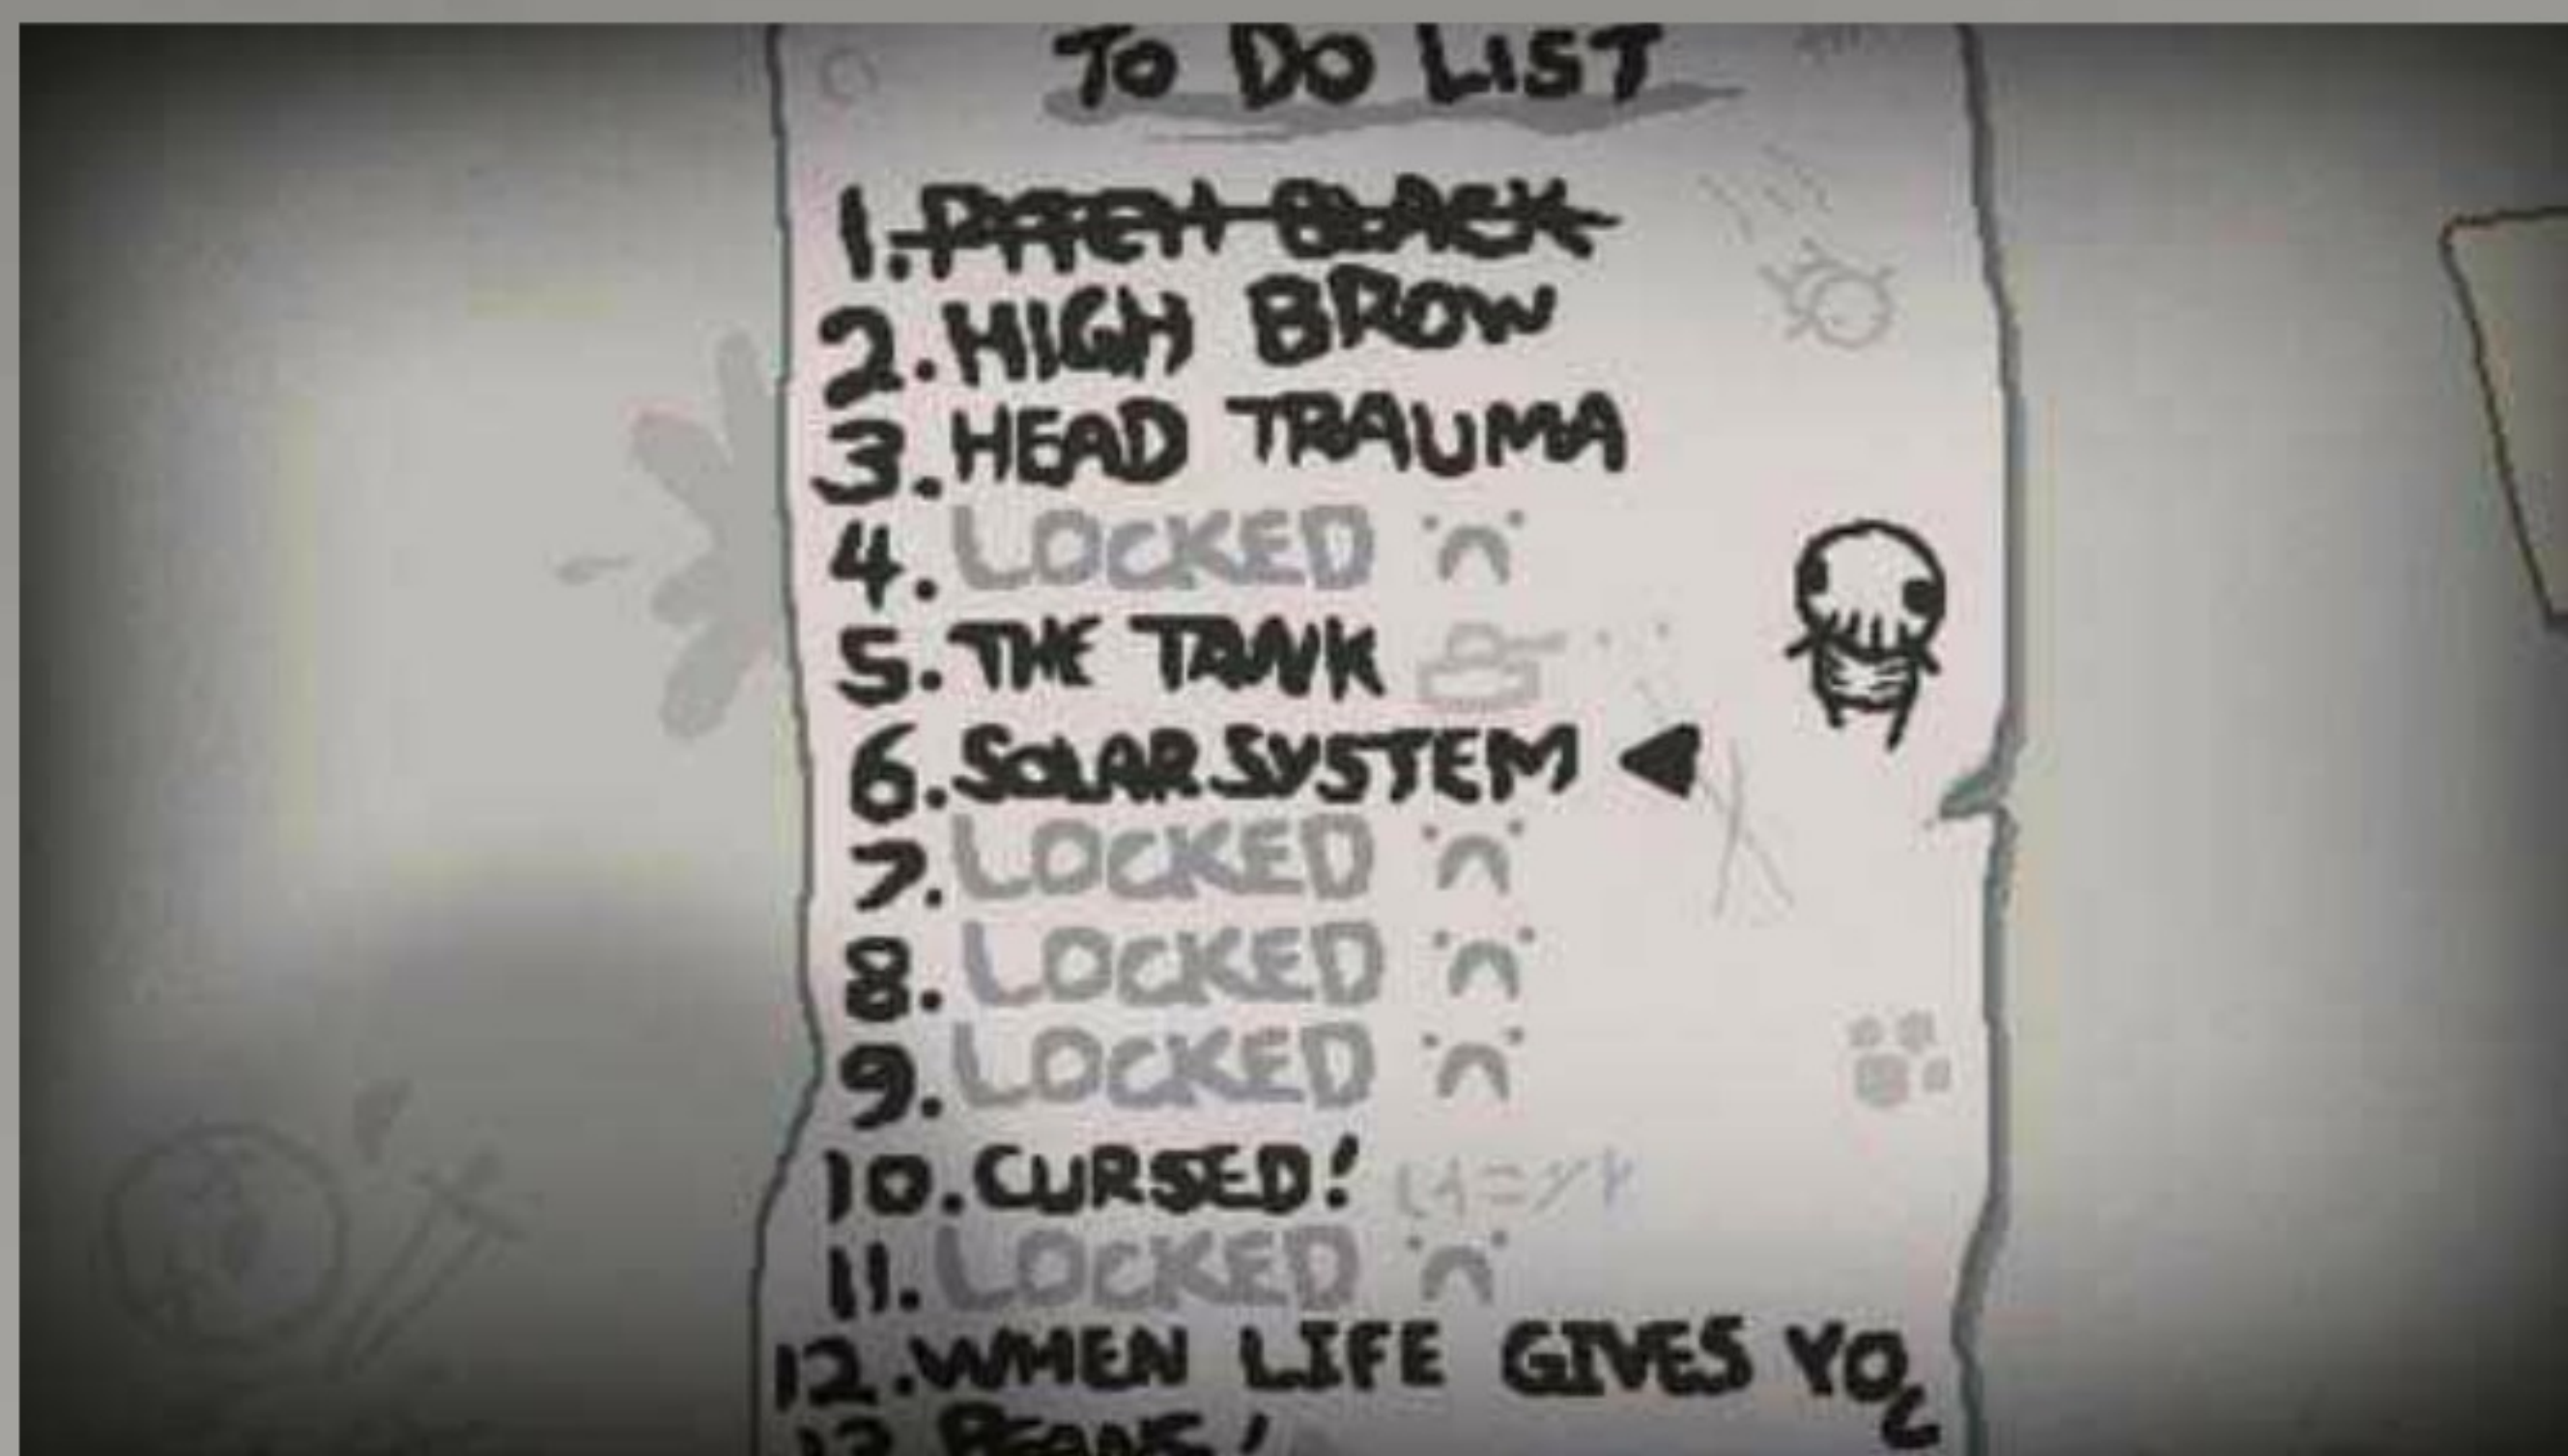 TO DO LIST
1. PITCH BLACK
2. HIGH BROW
3. HEAD TRAUMA
4. LOCKED
5. THE TANK
6. SOLAR SYSTEM
7. LOCKED
8. LOCKED
9. LOCKED
10. CURSED!
11. LOCKED
12. WHEN LIFE GIVES YOU
13. BEANS!